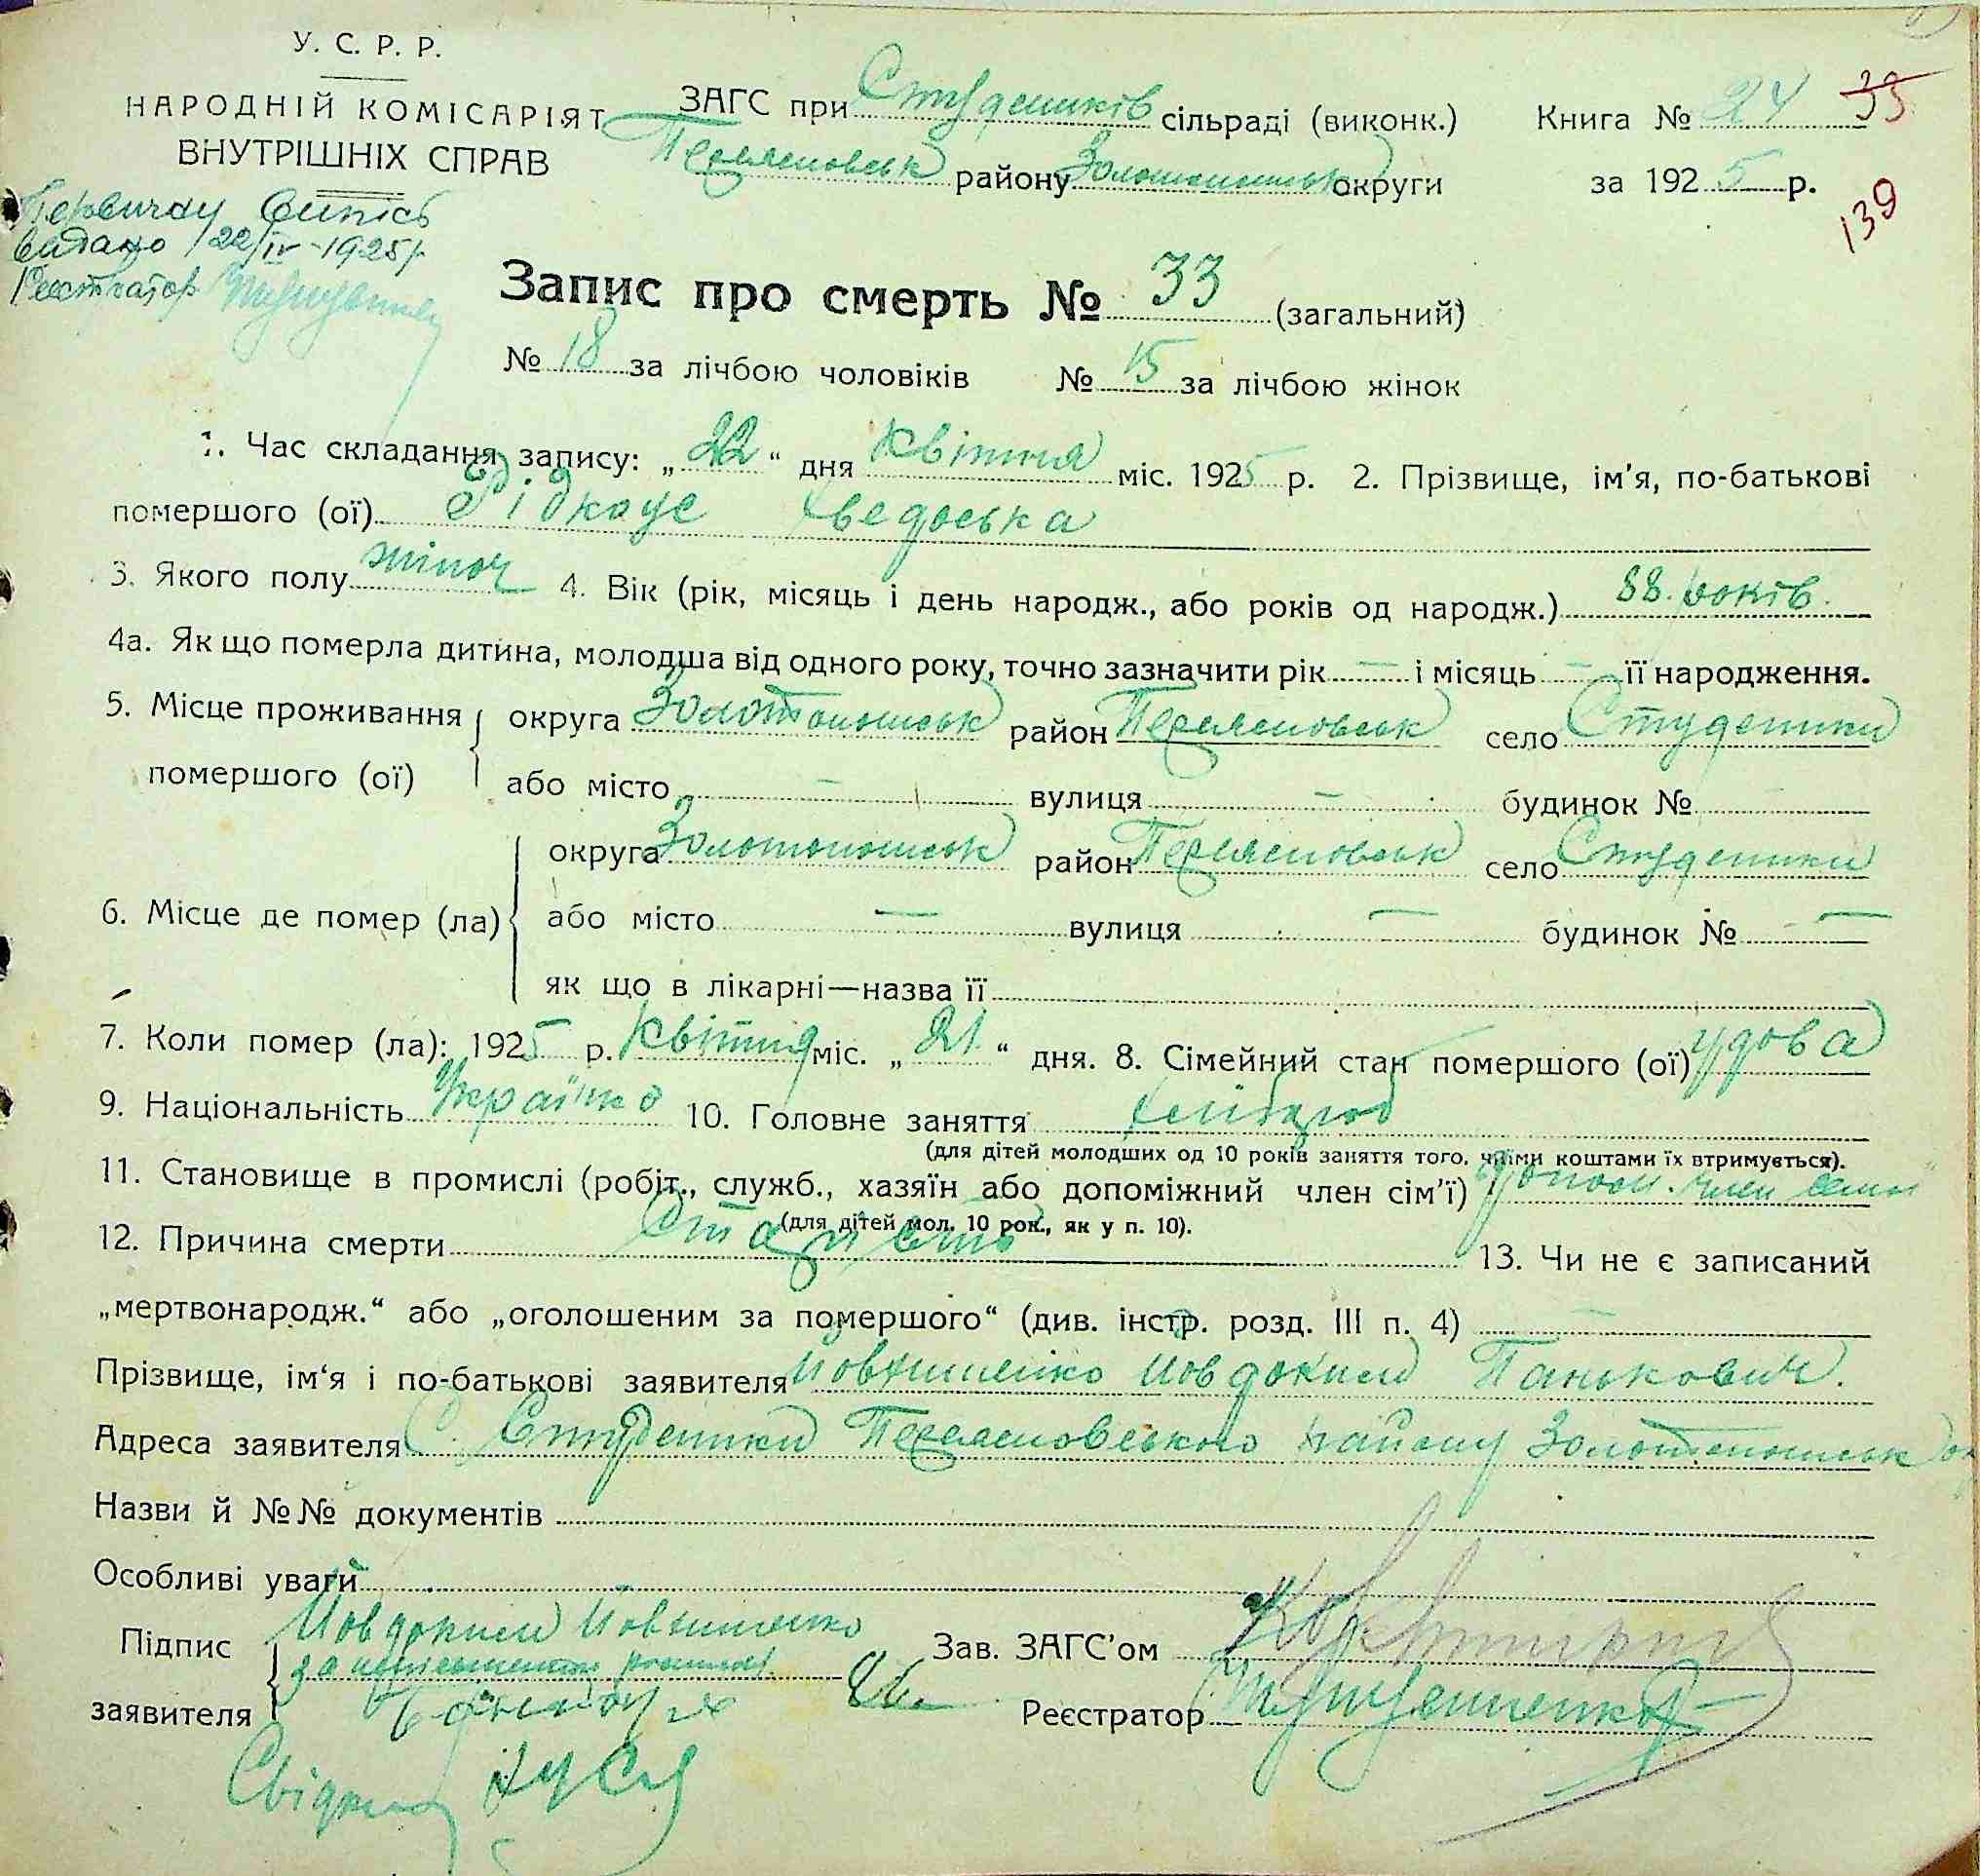 У. С. Р. Р.
НАРОДНІЙ КОМІСАРІЯТ
ВНУТРІШНІХ СПРАВ
ЗАГС при Студеників сільраді (виконк.) Книга № 24 33
Переясловськ району Золотоношськ округи за 1925 р.
139
Первичну випісь
видано 22/IV-1925 р.
Реєстратор
Запис про смерть № 33 (загальний)
№ 18 за лічбою чоловіків № 15 за лічбою жінок
1. Час складання запису: „22“ дня Квітня міс. 1925 р. 2. Прізвище, ім'я, по-батькові
помершого (ої) Рідкоус Хведоська
3. Якого полу жіноч 4. Вік (рік, місяць і день народж., або років од народж.) 88 років.
4а. Як що померла дитина, молодша від одного року, точно зазначити рік — і місяць — її народження.
5. Місце проживання округа Золотоношськ район Переясловськ село Студеники
помершого (ої) або місто — вулиця — будинок №
округа Золотоношськ район Переясловськ село Студеники
6. Місце де помер (ла) або місто — вулиця — будинок № —
як що в лікарні—назва її
7. Коли помер (ла): 1925 р. Квітня міс. „21“ дня. 8. Сімейний стан помершого (ої) удова
9. Національність Українка 10. Головне заняття хлібороб
(для дітей молодших од 10 років заняття того, чиїми коштами їх втримується).
11. Становище в промислі (робіт., служб., хазяїн або допоміжний член сім'ї) допом. член семьи
(для дітей мол. 10 рок., як у п. 10).
12. Причина смерти Старість 13. Чи не є записаний
„мертвонародж.“ або „оголошеним за помершого“ (див. інстр. розд. III п. 4) —
Прізвище, ім'я і по-батькові заявителя Йовхименко Йовдоким Панькович.
Адреса заявителя С. Студеники Переясловського району Золотоношськ ок
Назви й №№ документів
Особливі уваги
Підпис Йовдоким Йовхименко Зав. ЗАГС'ом
заявителя за неписьменного росписавсь Реєстратор
Свідки